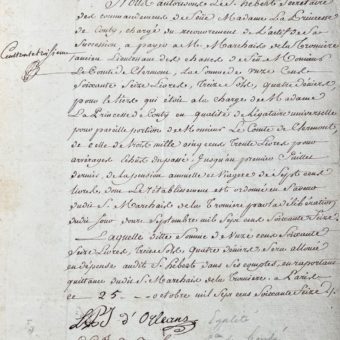 Nous autorisons le S. hebert Secretaire
des commandemens de feüe Madame La Princesse
de Conty, chargé du recouvrement de L'actif de sa
Succession, a payer a M. Marchais de la Tronière
ancien Lieutenant des chasses de feu Monsieur
Le Comte de Clermont, La Somme de onze Cens
Soixante Seize Livres, treize Sols, quatre deniers
pour le tiers qui étoit a la charge de Madame
La Princesse de Conty en qualité de Légataire universelle
pour pareille portion de Monsieur Le Comte de Clermont,
de celle de trois mil cinq cens trente Livres pour
arrérages échus jusqu'au premier Juillet
dernier, de la pension annuelle et Viagere de Sept cens
Livres dont L'établissement est ordonné en faveur
dudit S. Marchais de la Tronière par la délibération
dudit jour onze Septembre mil Sept cens Soixante Seize
Laquelle ditte Somme d'onze cens Soixante
Seize Livres, treize Sols, quatre deniers sera allouée
en dépense audit S. hebert dans ses comptes, en raportant
quittance dudit S. Marchais de la Tronière, a Paris
ce 25 octobre mil Sept cens Soixante Seize
L. P. J d'Orleans
Egalité